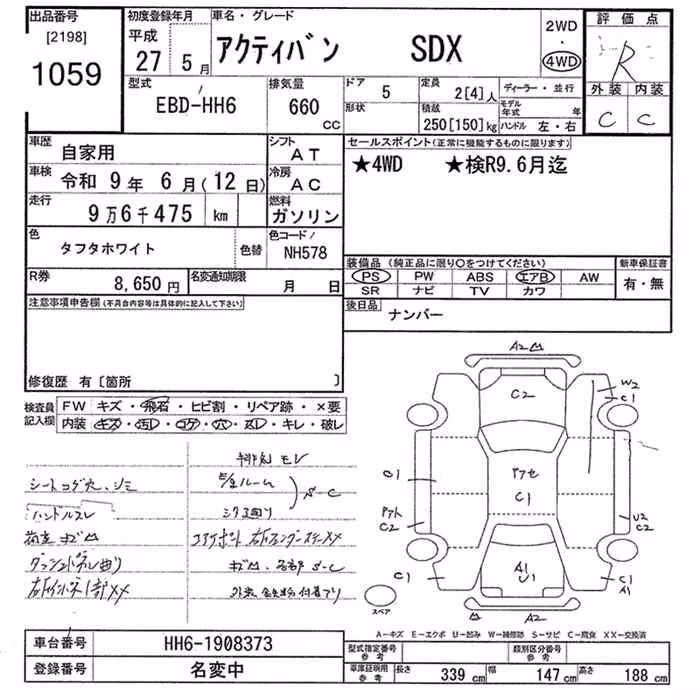 出品番号
[2198]
1059
初度登録年月
平成
27 5月
車名・グレード
アクティバン SDX
2WD
・
4WD
評価点
R
外装 内装
C C
型式
EBD-HH6
排気量
660
CC
ドア
5
形状
定員
2[4]人
積載
250[150]kg
ディーラー・並行
モデル年式 年
ハンドル 左・右
車歴
自家用
シフト
AT
車検
令和 9年 6月(12日)
冷房
AC
走行
9万6千475 km
燃料
ガソリン
色
タフタホワイト
色替
色コード
NH578
R券
8,650円
名変通知期限
月 日
セールスポイント(正常に機能するものに限ります)
★4WD ★検R9.6月迄
装備品(純正品に限り○をつけてください)
PS PW ABS エアB AW
SR ナビ TV カワ
新車保証書
有・無
後日品
ナンバー
注意事項申告欄(不具合内容等は具体的に記入して下さい)
修復歴 有〔箇所 〕
検査員
記入欄
FW キズ・飛石・ヒビ割・リペア跡・×要
内装 キズ・汚レ・コゲ・穴・スレ・キレ・破レ
シートコゲ穴、シミ
ハンドルスレ
S-C
A2
C2
W2
C1
C1
アカセ
C1
C2
U2
C2
A1
U1
C1
C1
A1
A2
スペア
A-キズ E-エクボ U-凹み W-補修跡 S-サビ C-腐食 XX-交換済
車台番号
HH6-1908373
登録番号
名変中
型式指定番号
参考
類別区分番号
参考
車庫証明用
参考
長さ 339cm 幅 147cm 高さ 188cm